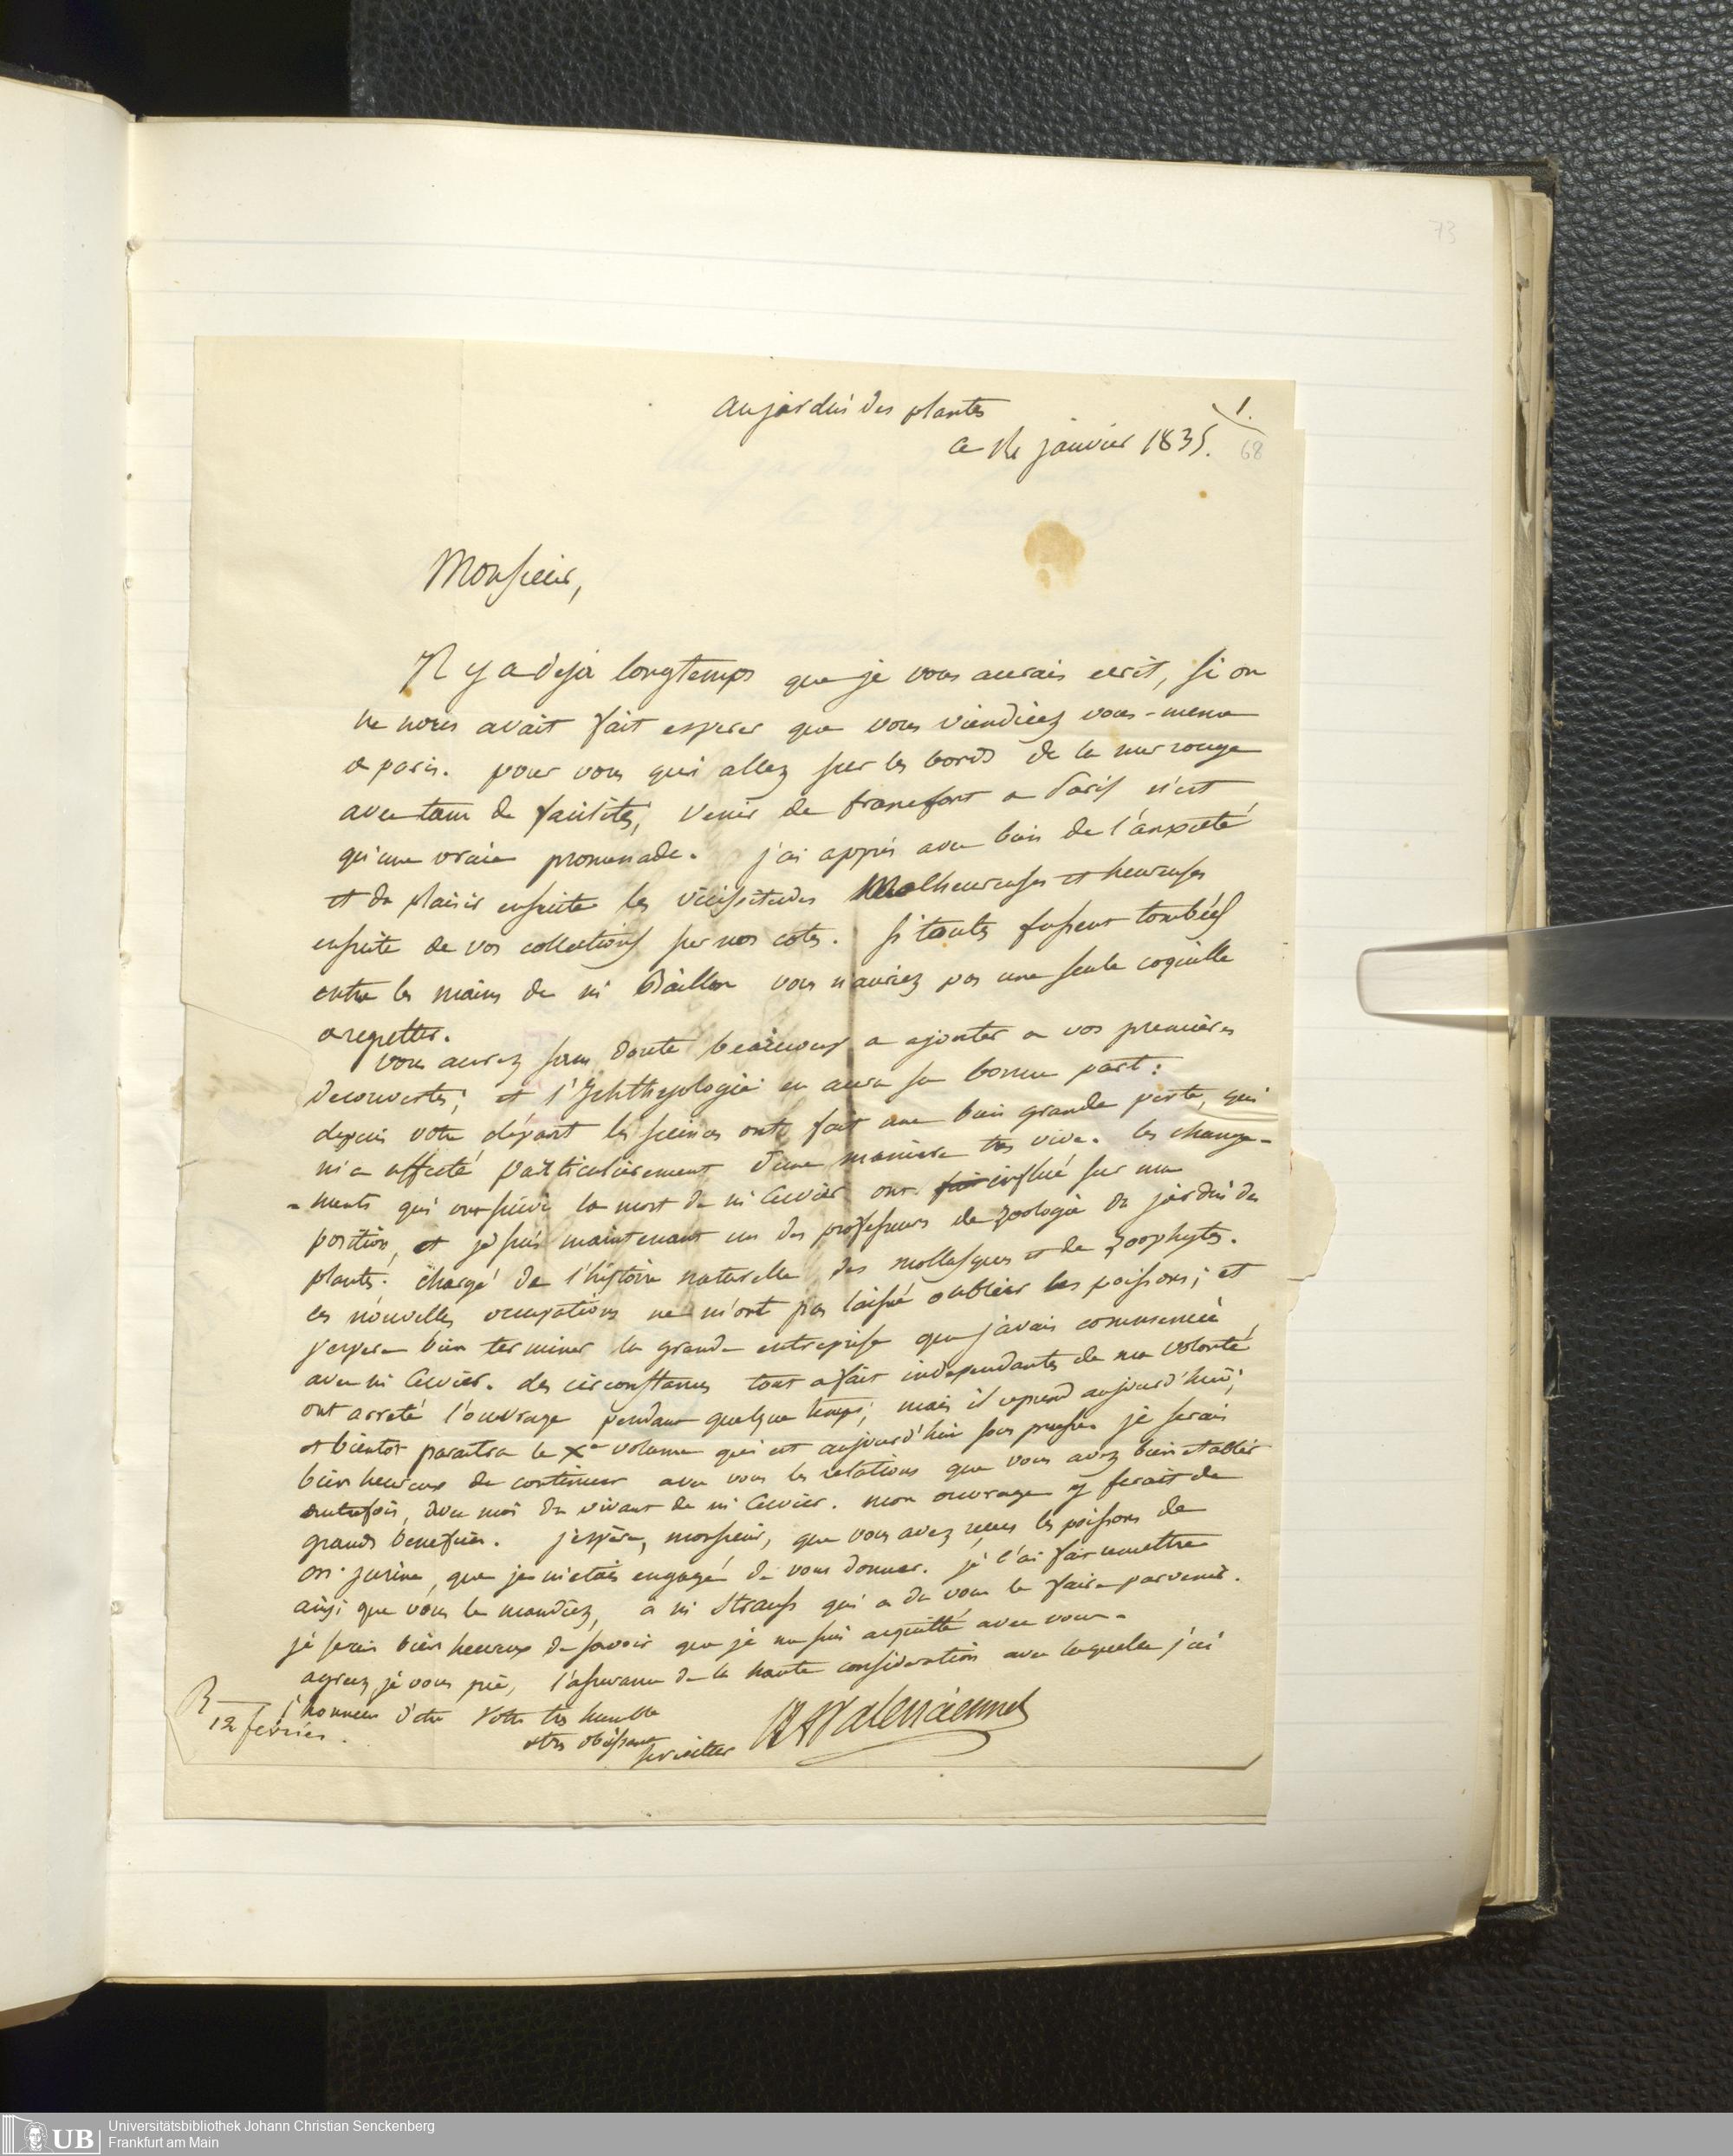 73
au jardin des plantes
ce janvier 1835.
1.
68
Monsieur,
Il y a deja longtemps que je vous aurais ecrit, si on
ne nous avait fait esperer que vous viendriez vous-meme
a paris. pour vous qui allez sur les bords de la mer rouge
avec tant de facilités, venir de francfort a Paris n'est
qu'une vraie promenade. j'ai appris avec bien de l'anxieté
et du plaisir ensuite les vicissitudes malheureuses et heureuses
ensuite de vos collections sur nos cotes. si toutes fussent tombées
entre les mains de m Baillon vous n'auriez pas une seule coquille
a regretter.
vous aurez sans doute beaucoup a ajouter a vos premières
decouvertes; et l'Ichthyologie en aura sa bonne part:
depuis votre départ les sciences ont fait une bien grande perte, qui
m'a affecté particulièrement d'une manière tres vive. les change-
-ments qui ont suivi la mort de m Cuvier ont influé sur ma
position, et je suis maintenant un des professeurs de zoologie du jardin des
plantes. chargé de l'histoire naturelle des mollusques et de zoophytes.
ces nouvelles occupations ne m'ont pas laissé oublier les poissons; et
j'espere bien terminer la grande entreprise que j'avais commencée
avec m Cuvier. des circonstances tout a fait independantes de ma volonté
ont arreté l'ouvrage pendant quelque temps; mais il reprend aujourd'hui;
et bientot paraitra le Xe volume qui est aujourd'hui sous presse. je serais
bien heureux de continuer avec vous les relations que vous avez bien etablir
autrefois, avec moi du vivant de m Cuvier. mon ouvrage y ferait de
grands benefices. j'espère, monsieur, que vous avez reçu les poissons de
jurine, que je m'etais engagé de vous donner. je l'ai fait remettre
ainsi que vous le mandiez, a m Strauss qui a du vous le faire parvenir.
je serais bien heureux de savoir que je me suis acquitté avec vous.
agreez, je vous prie, l'assurance de la haute consideration avec laquelle j'ai
l'honneur d'etre votre tres humble
et tres obeissant
serviteur
Valenciennes
R
12 fevrier.
UB
Universitätsbibliothek Johann Christian Senckenberg
Frankfurt am Main